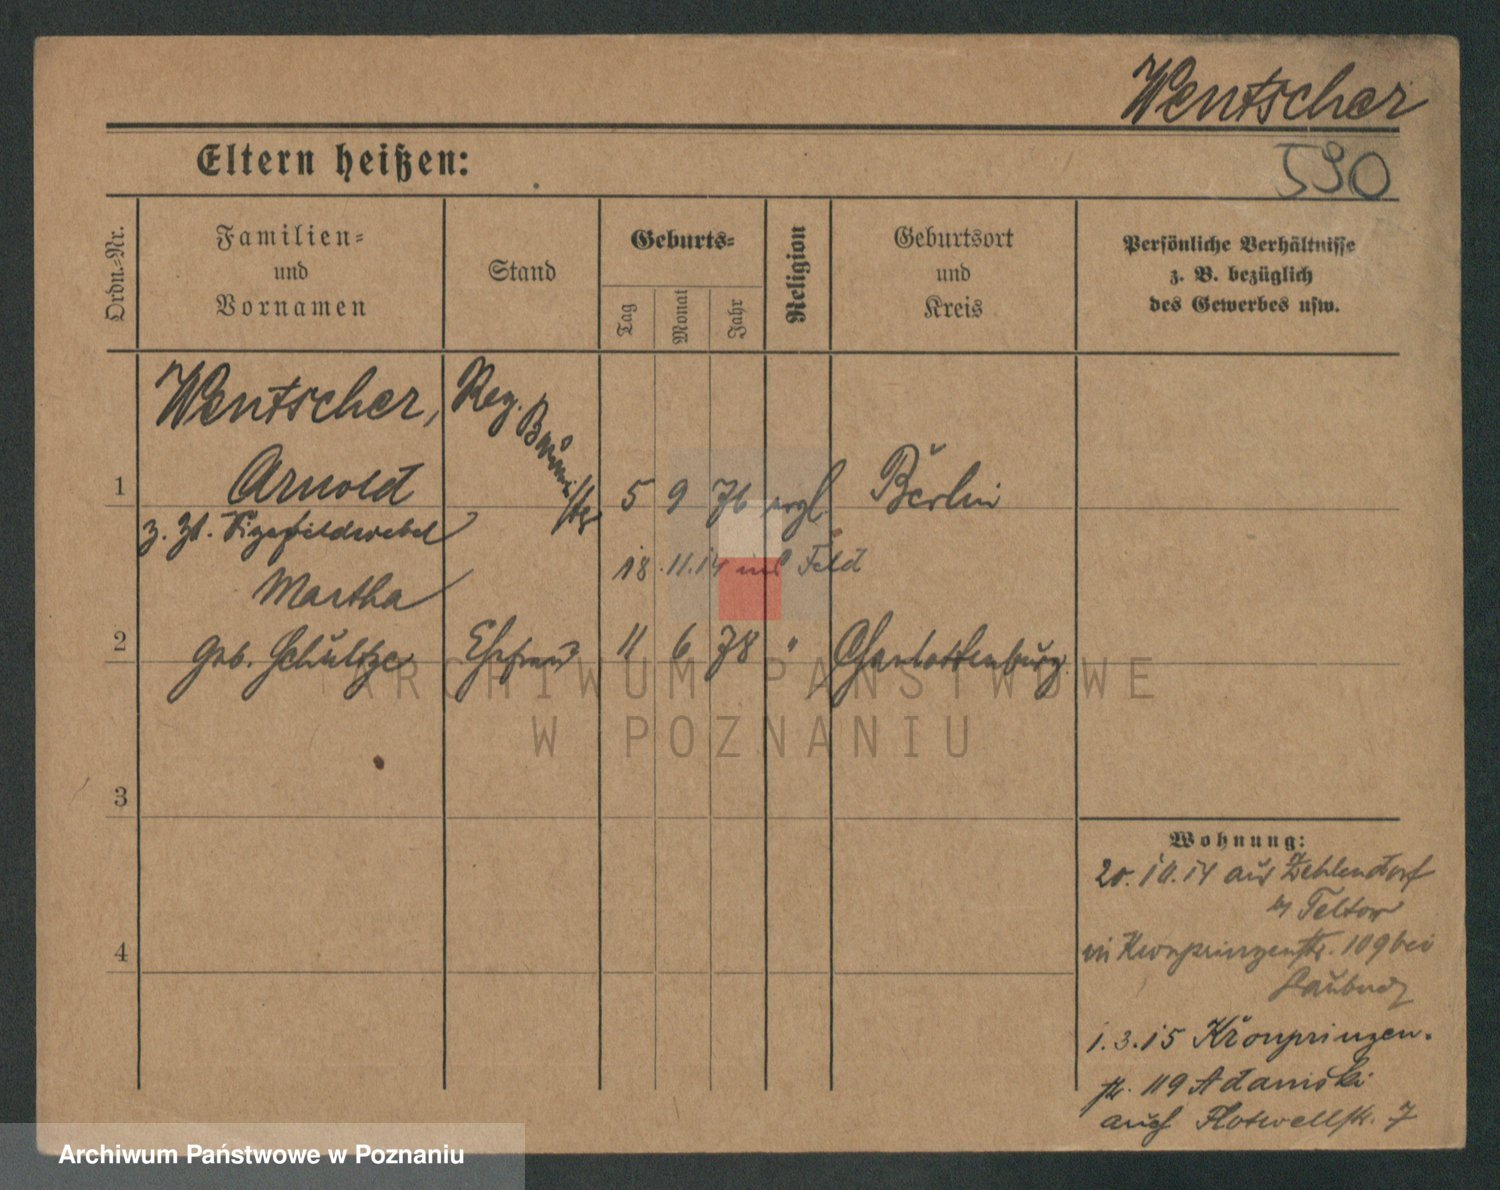 Wentscher
590
Eltern heißen:
Ordn.-Nr.
Familien-
und
Vornamen
Stand
Geburts-
Tag
Monat
Jahr
Religion
Geburtsort
und
Kreis
Persönliche Verhältnisse
z. B. bezüglich
des Gewerbes usw.
1
Wentscher,
Arnold
Reg. Baumeister
5 9 76 evgl. Berlin
z. Zt. Vizefeldwebel
18.11.14 ins Feld
2
Martha
geb. Schultze
Ehefrau
11 6 78 " Charlottenburg
3
4
Wohnung:
20.10.14 aus Zehlendorf
Teltow
in Kronprinzenstr. 109 bei
1.3.15 Kronprinzen-
str. 119 Adamski
auch Flotwellstr. 7
ARCHIWUM PAŃSTWOWE
W POZNANIU
Archiwum Państwowe w Poznaniu